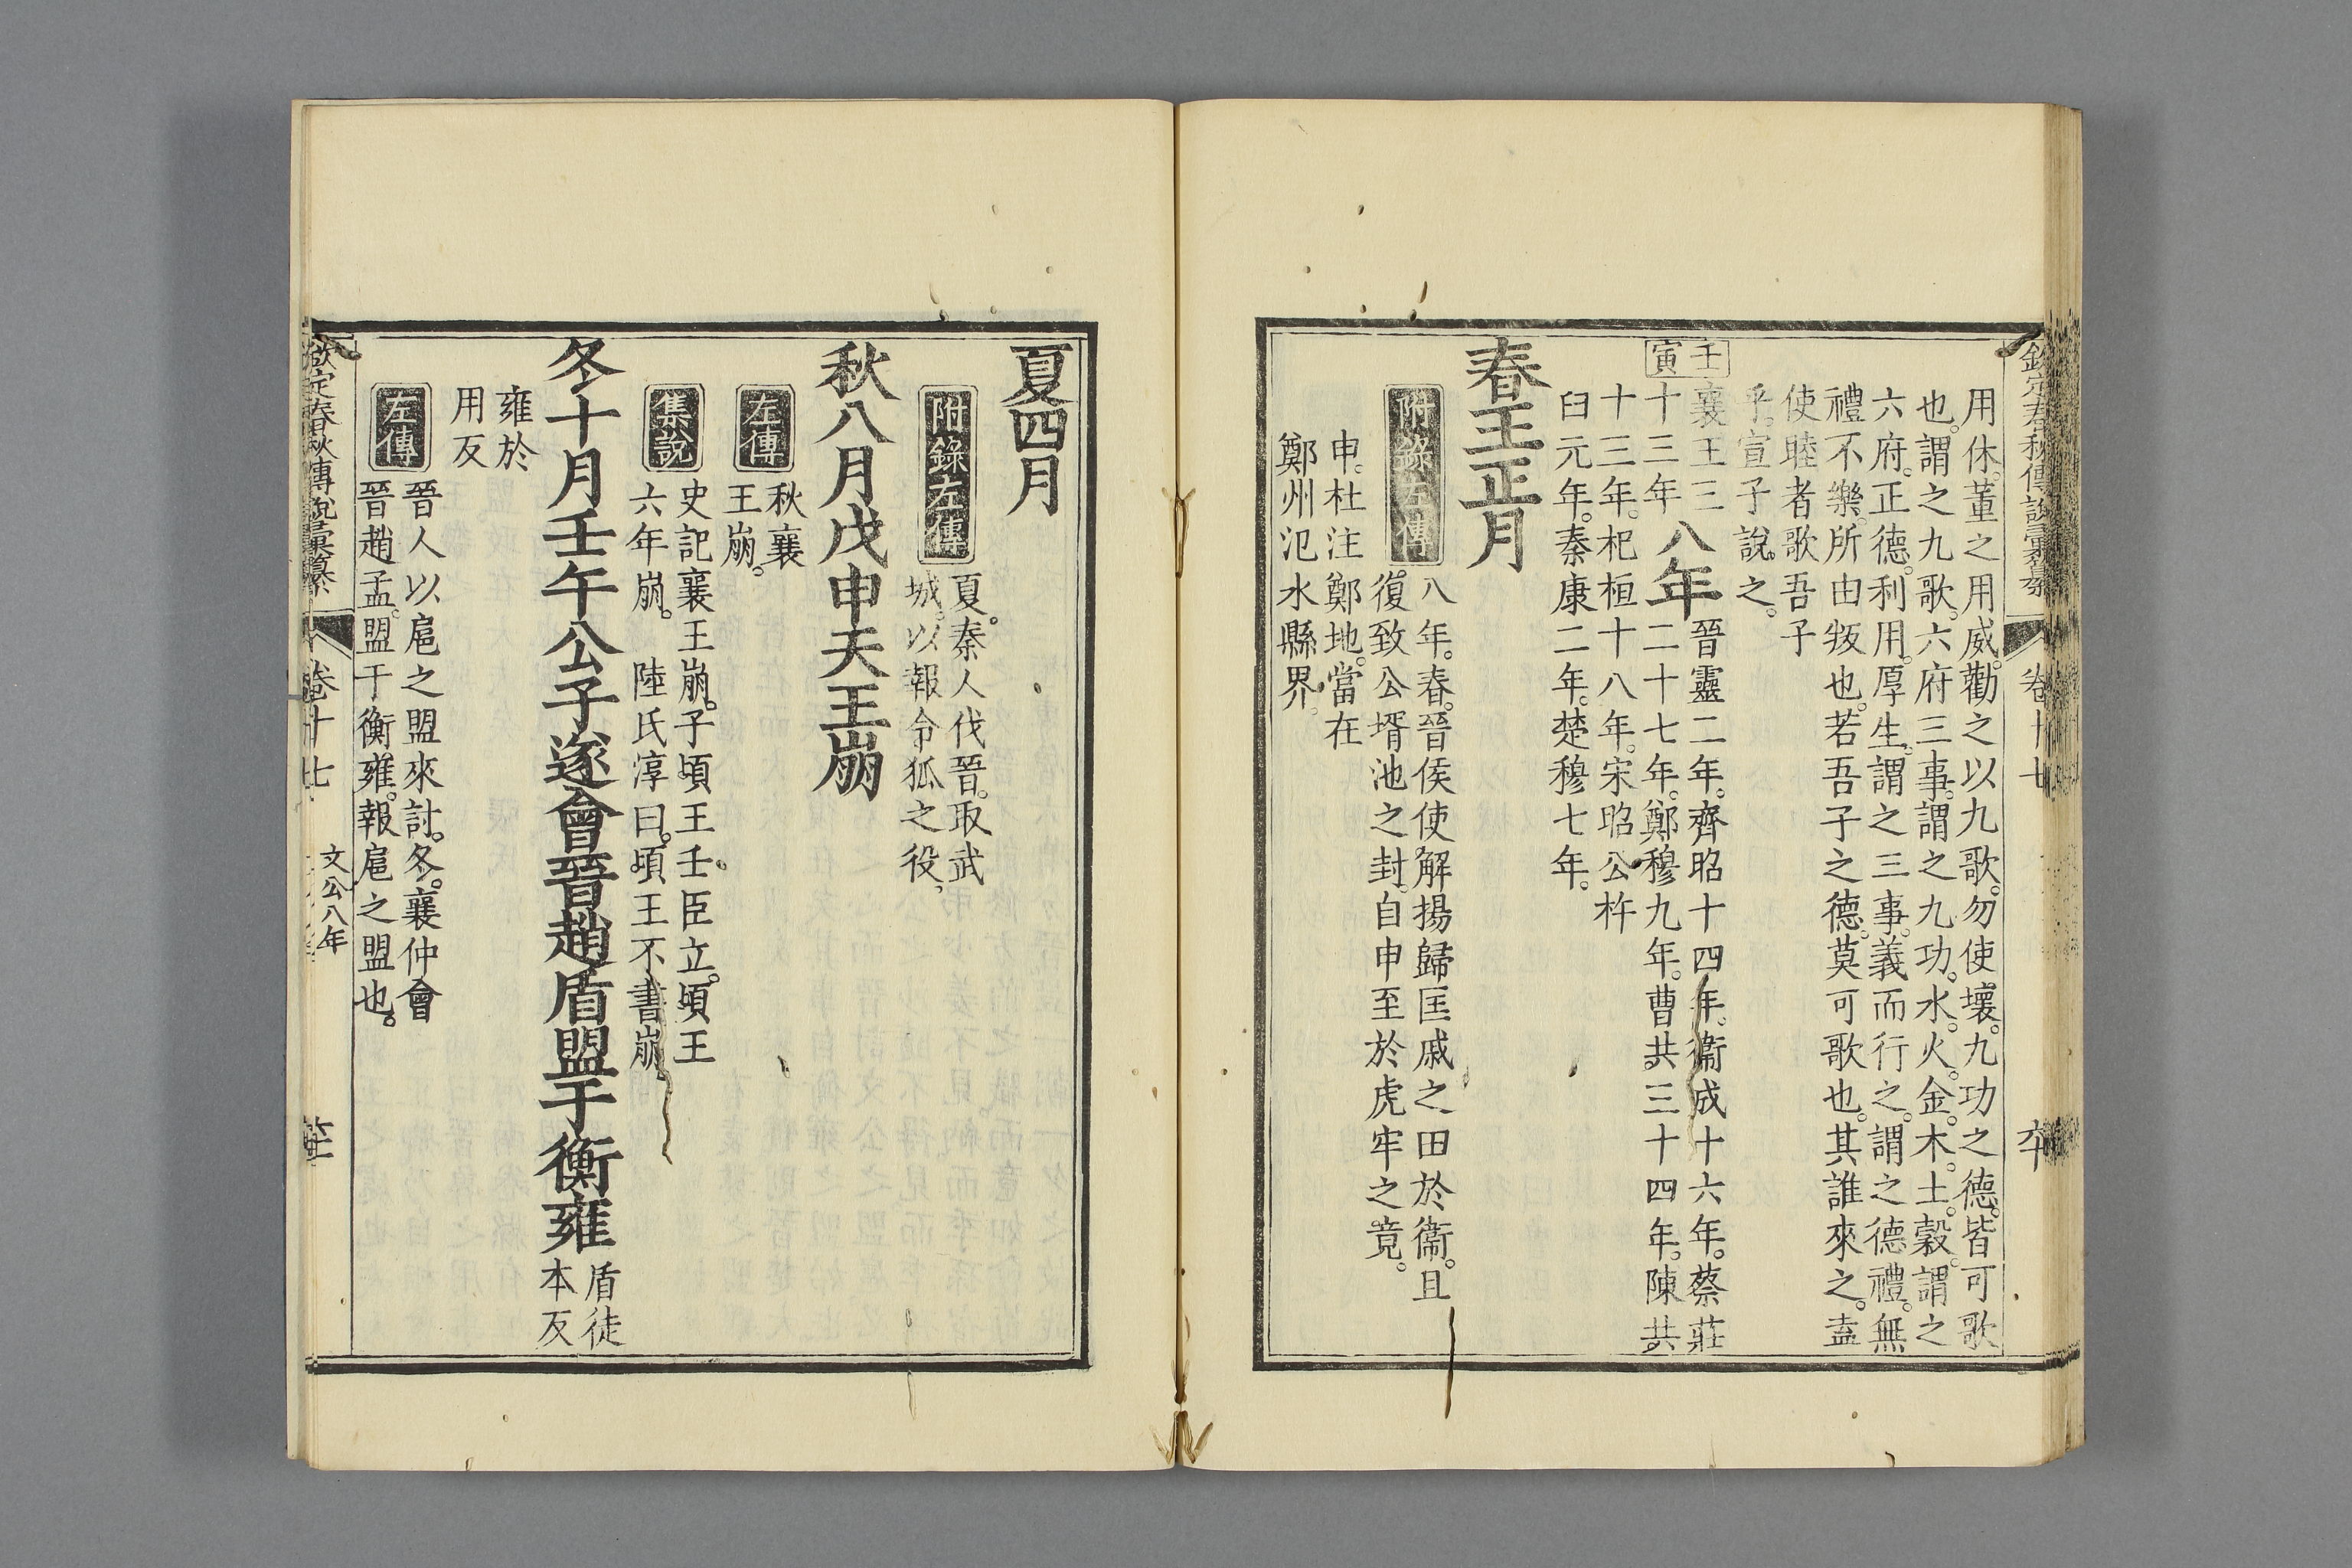 欽定春秋傳說彙纂 卷十七
用休。董之用威。勸之以九歌。勿使壞。九功之德。皆可歌
也。謂之九歌。六府三事。謂之九功。水。火。金。木。土。穀。謂之
六府。正德。利用。厚生。謂之三事。義而行之。謂之德禮。無
禮不樂。所由叛也。若吾子之德。莫可歌也。其誰來之。盍
使睦者歌吾子
乎。宣子說之。
壬寅
襄王三
十三年
八年
晉靈二年。齊昭十四年。衞成十六年。蔡莊
二十七年。鄭穆九年。曹共三十四年。陳共
十三年。杞桓十八年。宋昭公杵
臼元年。秦康二年。楚穆七年。
春王正月
附錄左傳
八年。春。晉侯使解揚歸匡戚之田於衞。且
復致公壻池之封。自申至於虎牢之竟。
申。杜注鄭地。當在
鄭州氾水縣界。
夏四月
附錄左傳
夏。秦人伐晉。取武
城。以報令狐之役。
秋八月戊申天王崩
左傳
秋襄
王崩。
集說
史記襄王崩。子頃王壬臣立。頃王
六年崩。 陸氏淳曰。頃王不書崩。
冬十月壬午公子遂會晉趙盾盟于衡雍
盾徒
本反
雍於
用反
左傳
晉人以扈之盟來討。冬。襄仲會
晉趙孟。盟于衡雍。報扈之盟也。
欽定春秋傳說彙纂 卷十七 文公八年